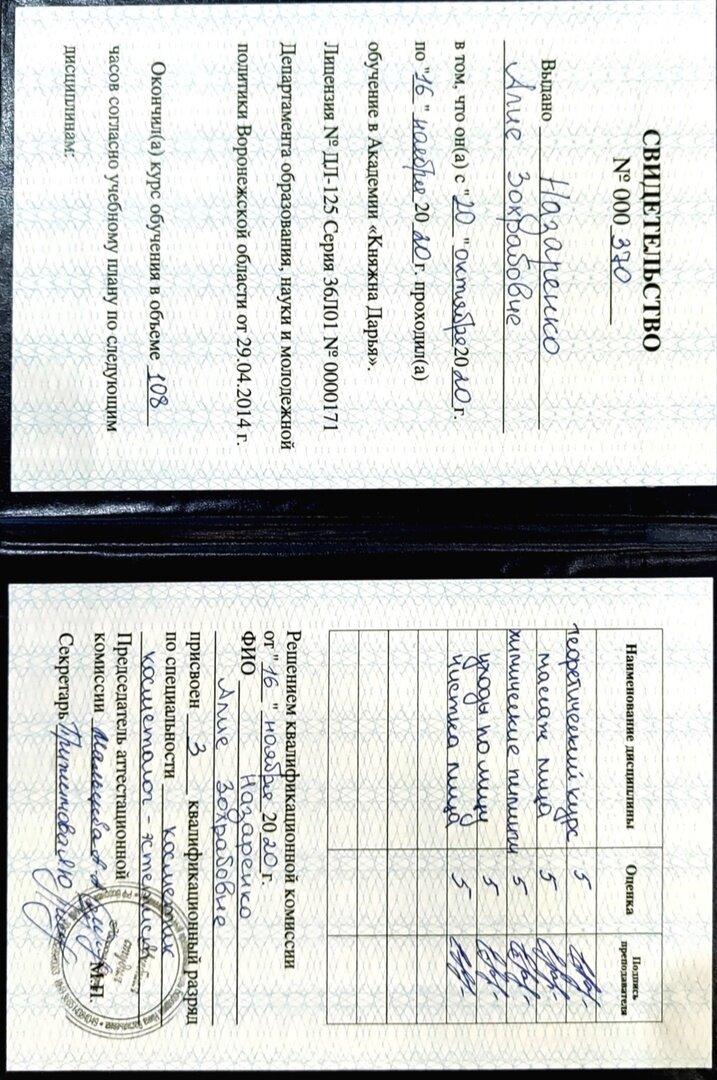 СВИДЕТЕЛЬСТВО
№ 000 370
Выдано Назаренко
Алие Зохрабовне
в том, что он(а) с "20" октября 2020 г.
по "16" ноября 2020 г. проходил(а)
обучение в Академии «Княжна Дарья».
Лицензия № ДЛ-125 Серия 36Л01 № 0000171
Департамента образования, науки и молодежной
политики Воронежской области от 29.04.2014 г.
Окончил(а) курс обучения в объеме 108
часов согласно учебному плану по следующим
дисциплинам:
Наименование дисциплины Оценка Подпись преподавателя
теоретический курс 5
массаж лица 5
химические пилинги 5
уходы по лицу 5
чистка лица 5
Решением квалификационной комиссии
от "16" ноября 2020 г.
ФИО Назаренко
Алие Зохрабовне
присвоен 3 квалификационный разряд
по специальности косметик
косметолог - эстетист
Председатель аттестационной
комиссии М.П.
Секретарь